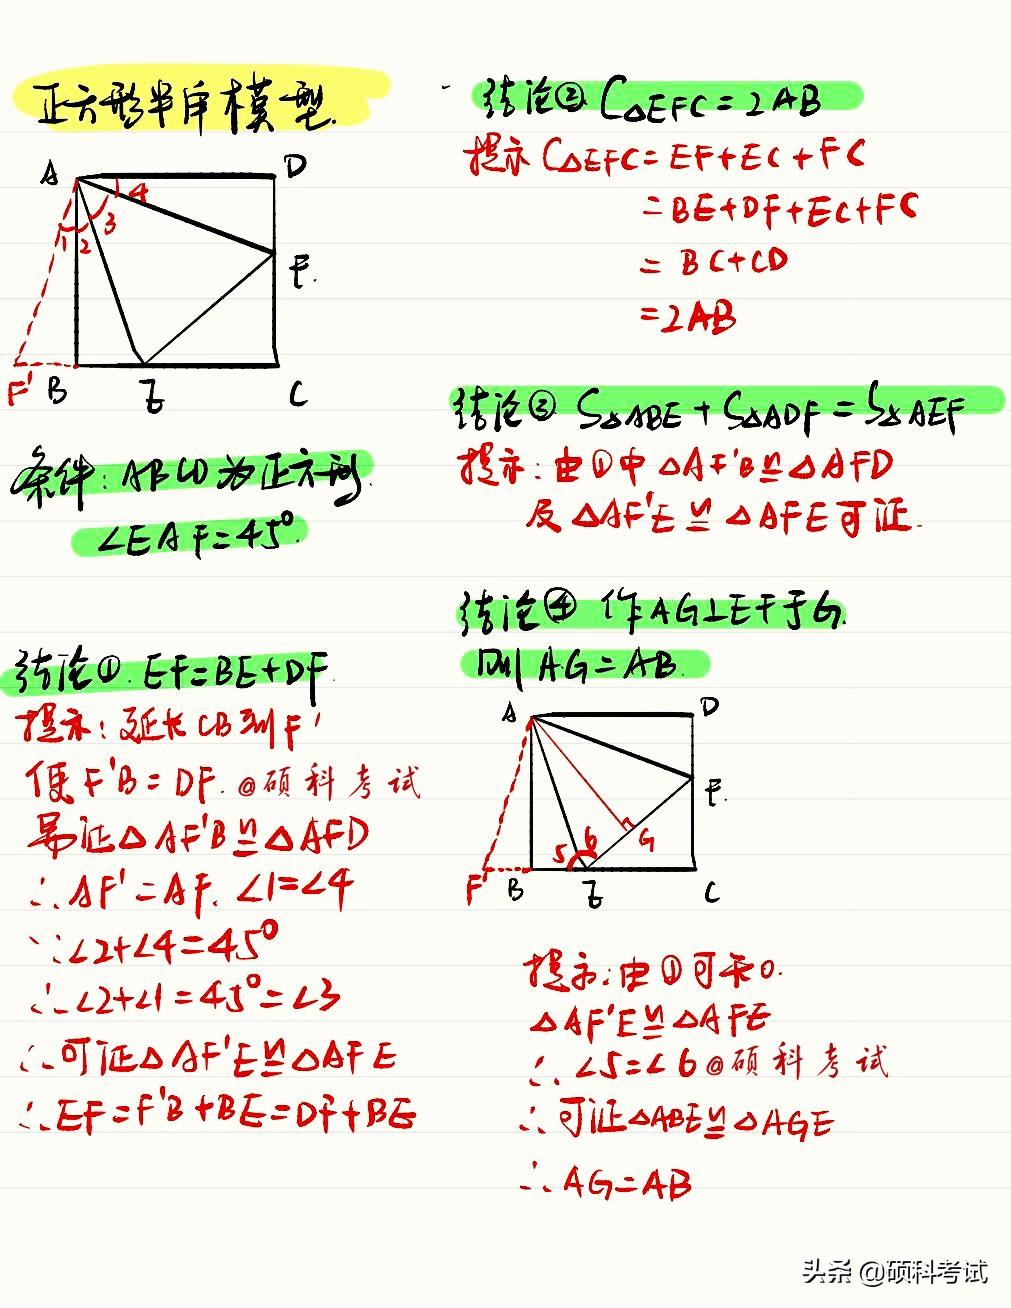 正方形半角模型.
A
D
4
3
1
2
F.
F'
B
E
C
条件: ABCD为正方形.
∠EAF=45°.
结论①. EF=BE+DF
提示: 延长CB到F'
使F'B=DF. @硕科考试
易证△AF'B≌△AFD
∴AF'=AF. ∠1=∠4
∵∠2+∠4=45°
∴∠2+∠1=45°=∠3
∴可证△AF'E≌△AFE
∴EF=F'B+BE=DF+BE
结论② C△EFC=2AB
提示 C△EFC=EF+EC+FC
=BE+DF+EC+FC
=BC+CD
=2AB
结论③ S△ABE+S△ADF=S△AEF
提示: 由①中△AF'B≌△AFD
及△AF'E≌△AFE可证.
结论④ 作AG⊥EF于G.
则AG=AB.
A
D
F.
5
6
G
F'
B
E
C
提示: 由①可知.
△AF'E≌△AFE
∴∠5=∠6@硕科考试
∴可证△ABE≌△AGE
∴AG=AB
头条 @硕科考试